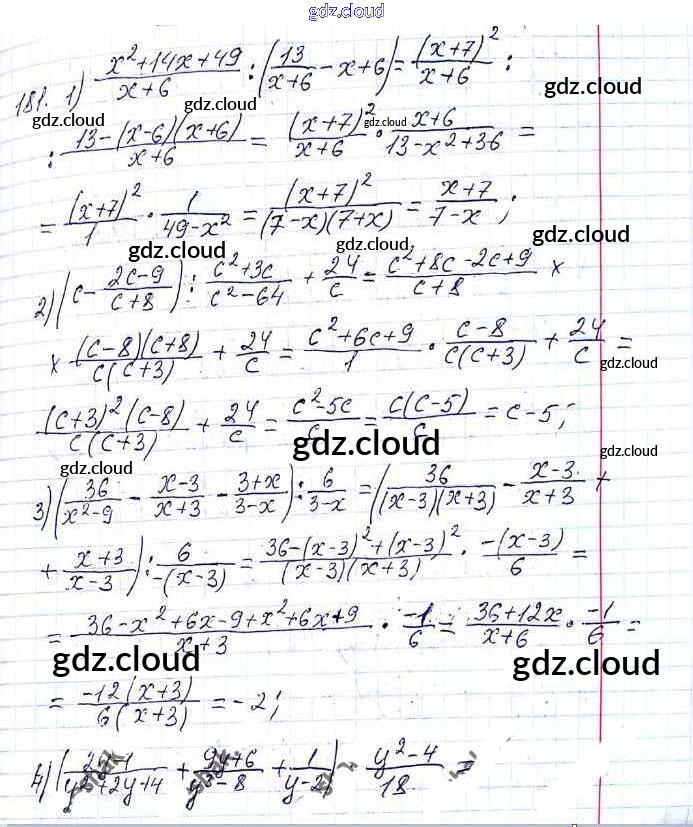 gdz.cloud
181. 1) (x²+14x+49)/(x+6) : (13/(x+6) - x+6) = (x+7)²/(x+6) :
gdz.cloud gdz.cloud gdz.cloud
: (13-(x-6)(x+6))/(x+6) = (x+7)²/(x+6) · (x+6)/(13-x²+36) =
gdz.cloud
= (x+7)²/1 · 1/(49-x²) = (x+7)²/((7-x)(7+x)) = (x+7)/(7-x);
gdz.cloud gdz.cloud gdz.cloud
2) (c - (2c-9)/(c+8)) : (c²+3c)/(c²-64) + 24/c = (c²+8c-2c+9)/(c+8) ×
× ((c-8)(c+8))/(c(c+3)) + 24/c = (c²+6c+9)/1 · (c-8)/(c(c+3)) + 24/c =
gdz.cloud gdz.cloud gdz.cloud
((c+3)²(c-8))/(c(c+3)) + 24/c = (c²-5c)/c = (c(c-5))/c = c-5;
gdz.cloud
gdz.cloud gdz.cloud
3) (36/(x²-9) - (x-3)/(x+3) - (3+x)/(3-x)) : 6/(3-x) = (36/((x-3)(x+3)) - (x-3)/(x+3) +
+ (x+3)/(x-3)) : 6/(-(x-3)) = (36-(x-3)²+(x-3)²)/((x-3)(x+3)) · (-(x-3))/6 =
= (36-x²+6x-9+x²+6x+9)/(x+3) · (-1)/6 = (36+12x)/(x+6) · (-1)/6 =
gdz.cloud gdz.cloud
= (-12(x+3))/(6(x+3)) = -2;